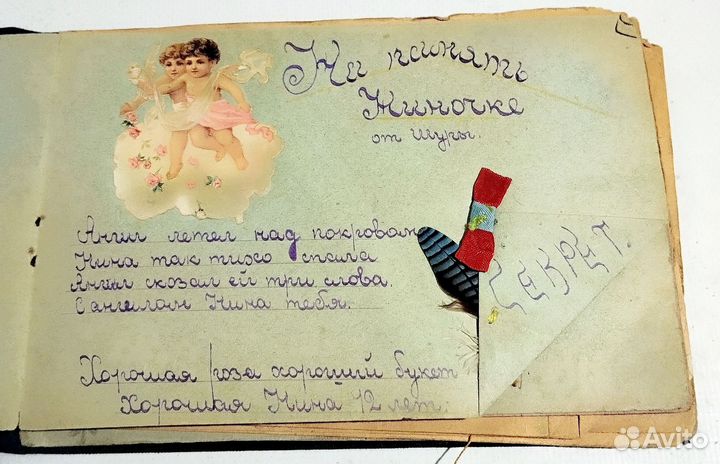 На память
Ниночке
от Шуры.
Ангил летел над покровам
Нина так тихо спала
Ангил скозал ей три слова.
С ангелам Нина тебя.
СЕКРЕТ.
Хорошая роза хороший букет
Хорошая Нина 12 лет.
Avito